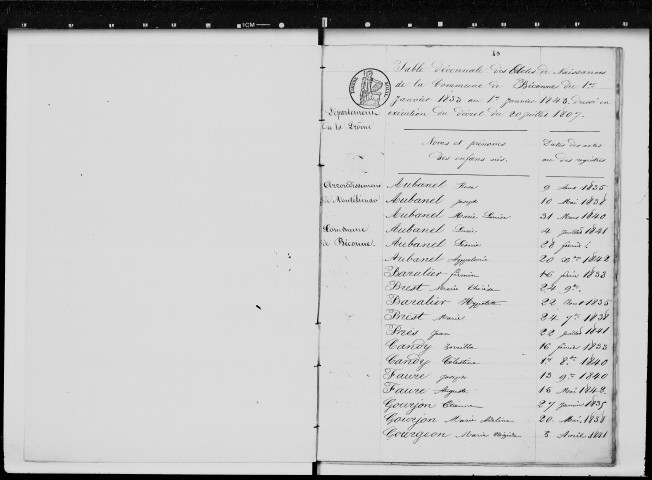 Table décennale des Actes de Naissances
de la Commune de Béconne du 1er
Janvier 1833 au 1er Janvier 1843. dressé en
exécution du décret du 20 juillet 1807.
Département
de la Drôme
Noms et prénoms
des enfans nés.
Dates des actes
ou des registres
Arrondissement
de Montélimar
Commune
de Béconne.
Aubanel Rose 9 Aout 1835
Aubanel Joseph 10 Mai 1838
Aubanel Marie Louise 31 Mars 1840
Aubanel Louis 4 juillet 1841
Aubanel 28 février
Aubanel Appolonie 20 Xbre 1842
Baralier firmin 16 1833
Brest Marie Thérèse 24 9bre
Baralier Hyppolite 22 Aout 1835
Brest Marie 24 7bre 1838
Brès Jean 22 juillet 1841
Candy 16 février 1833
Candy Célestine 17 8bre 1840
Faure Joseph 13 9bre 1840
Faure Auguste 16 Mai 1842
Gourjon Etienne 27 janvier 1835
Gourjon Marie 20 Mai 1838
Gourgeon Marie 8 Avril 1841